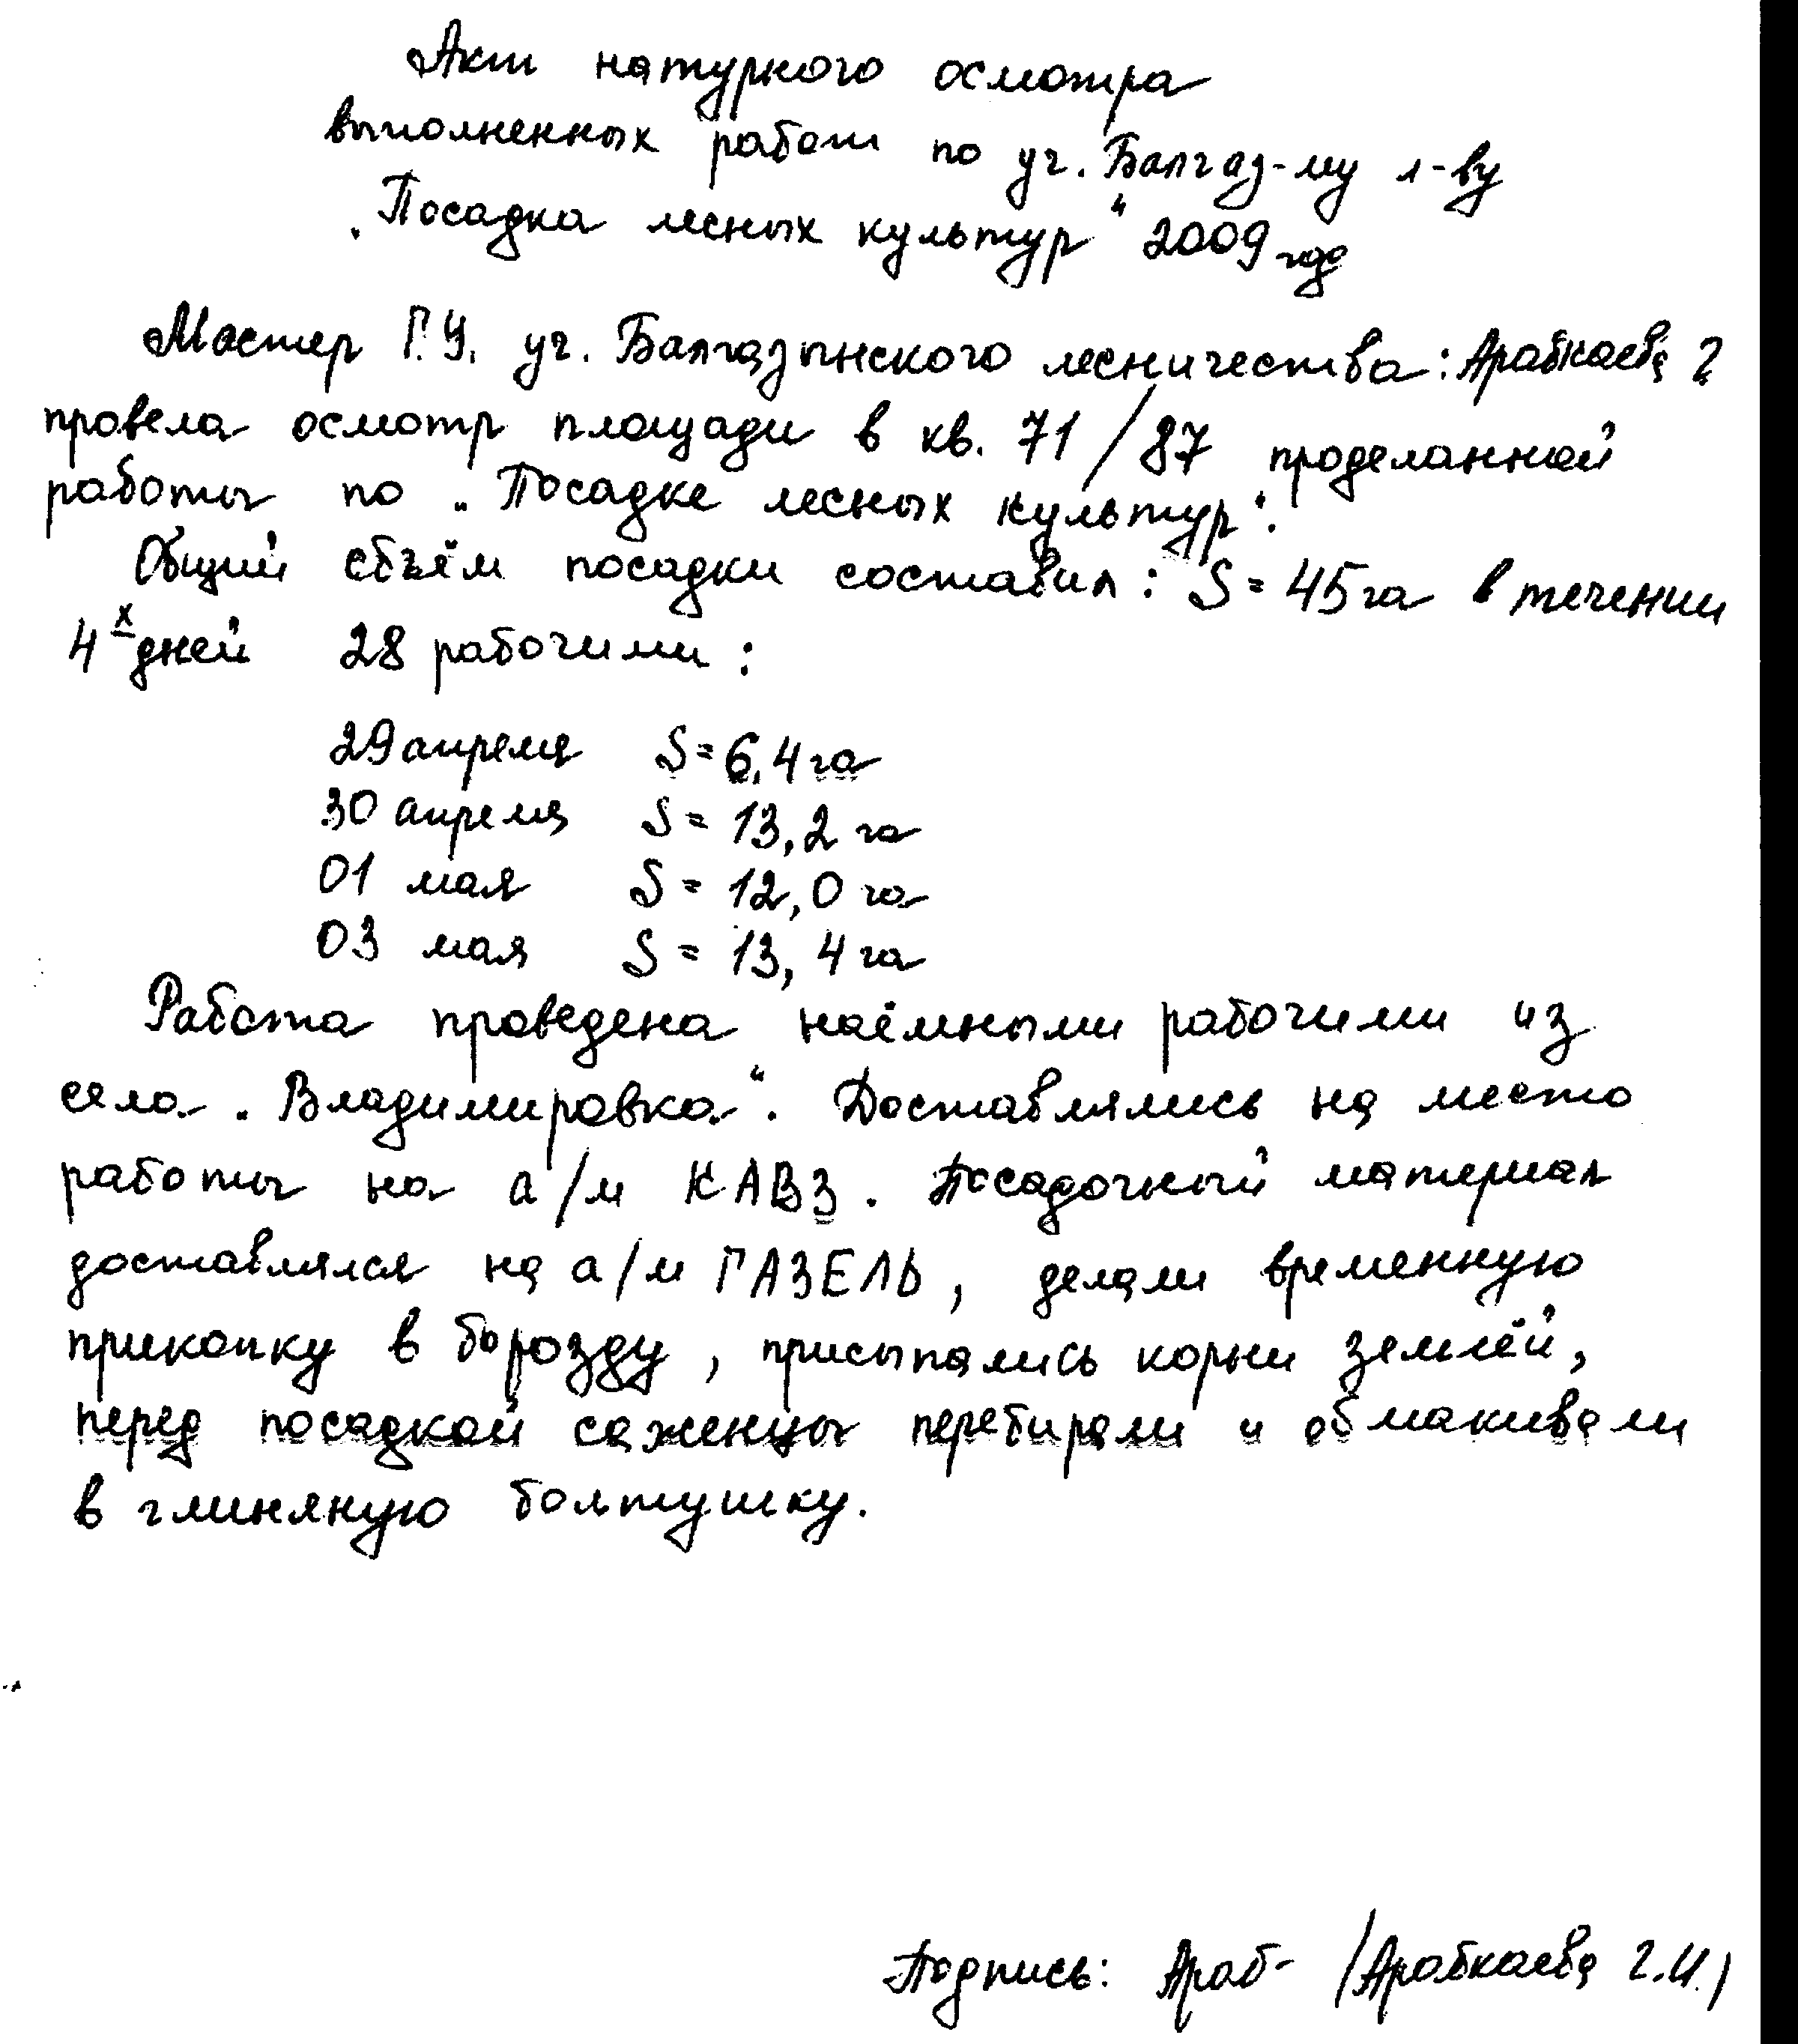 Акт натурного осмотра
выполненных работ по уч. Балгаз-му л-ву
„Посадка лесных культур“ 2009 год
Мастер Г.У. уч. Балгазынского лесничества: Арабкаева Г
провела осмотр площади в кв. 71/87 проделанной
работы по „Посадке лесных культур“.
Общий объём посадки составил: S = 45 га в течении
4х дней 28 рабочими:
29 апреля S = 6,4 га
30 апреля S = 13,2 га
01 мая S = 12,0 га
03 мая S = 13,4 га
Работа проведена наёмными рабочими из
села „Владимировка“. Доставлялись на место
работы на а/м КАВЗ. Посадочный материал
доставлялся на а/м ГАЗЕЛЬ, делали временную
прикопку в борозду, присыпались корни землёй,
перед посадкой саженцы перебирали и обмакивали
в глиняную болтушку.
Подпись: Араб- /Арабкаева Г.И./